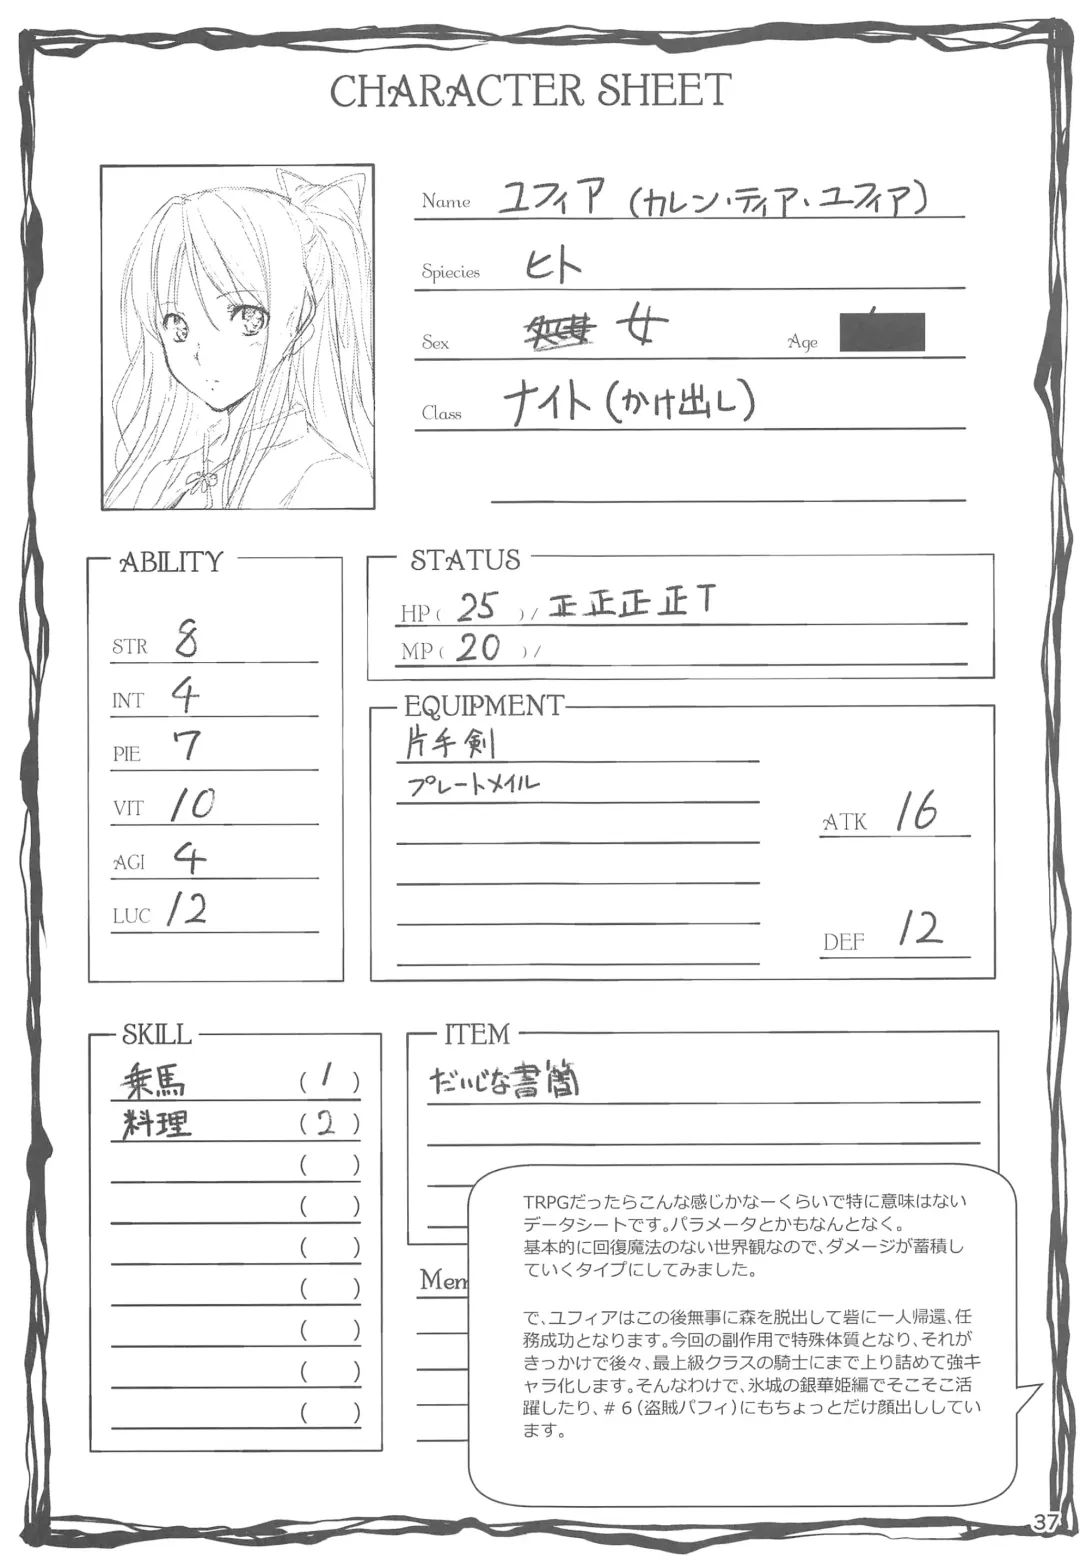 CHARACTER SHEET
Name ユフィア (カレン・ティア・ユフィア)
Spiecies ヒト
Sex 女 Age
Class ナイト(かけ出し)
ABILITY
STR 8
INT 4
PIE 7
VIT 10
AGI 4
LUC 12
STATUS
HP( 25 )/ 正正正正T
MP( 20 )/
EQUIPMENT
片手剣
プレートメイル
ATK 16
DEF 12
SKILL
乗馬 ( 1 )
料理 ( 2 )
( )
( )
( )
( )
( )
( )
( )
ITEM
だいじな書簡
Mem
TRPGだったらこんな感じかなーくらいで特に意味はない
データシートです。パラメータとかもなんとなく。
基本的に回復魔法のない世界観なので、ダメージが蓄積し
ていくタイプにしてみました。
で、ユフィアはこの後無事に森を脱出して砦に一人帰還、任
務成功となります。今回の副作用で特殊体質となり、それが
きっかけで後々、最上級クラスの騎士にまで上り詰めて強キ
ャラ化します。そんなわけで、氷城の銀華姫編でそこそこ活
躍したり、#6(盗賊パフィ)にもちょっとだけ顔出ししてい
ます。
37